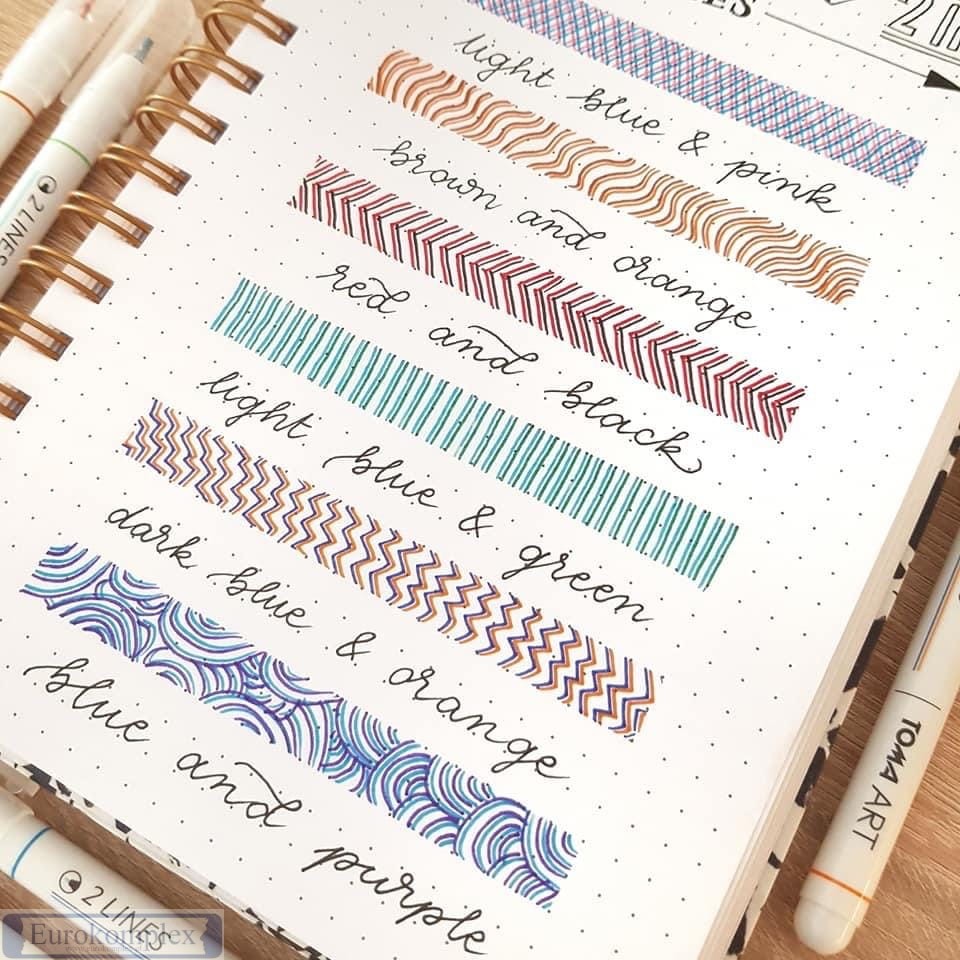 light blue & pink
brown and orange
red and black
light blue & green
dark blue & orange
blue and purple
2 LINES
TOMA ART
2 LINES
Eurokomplex